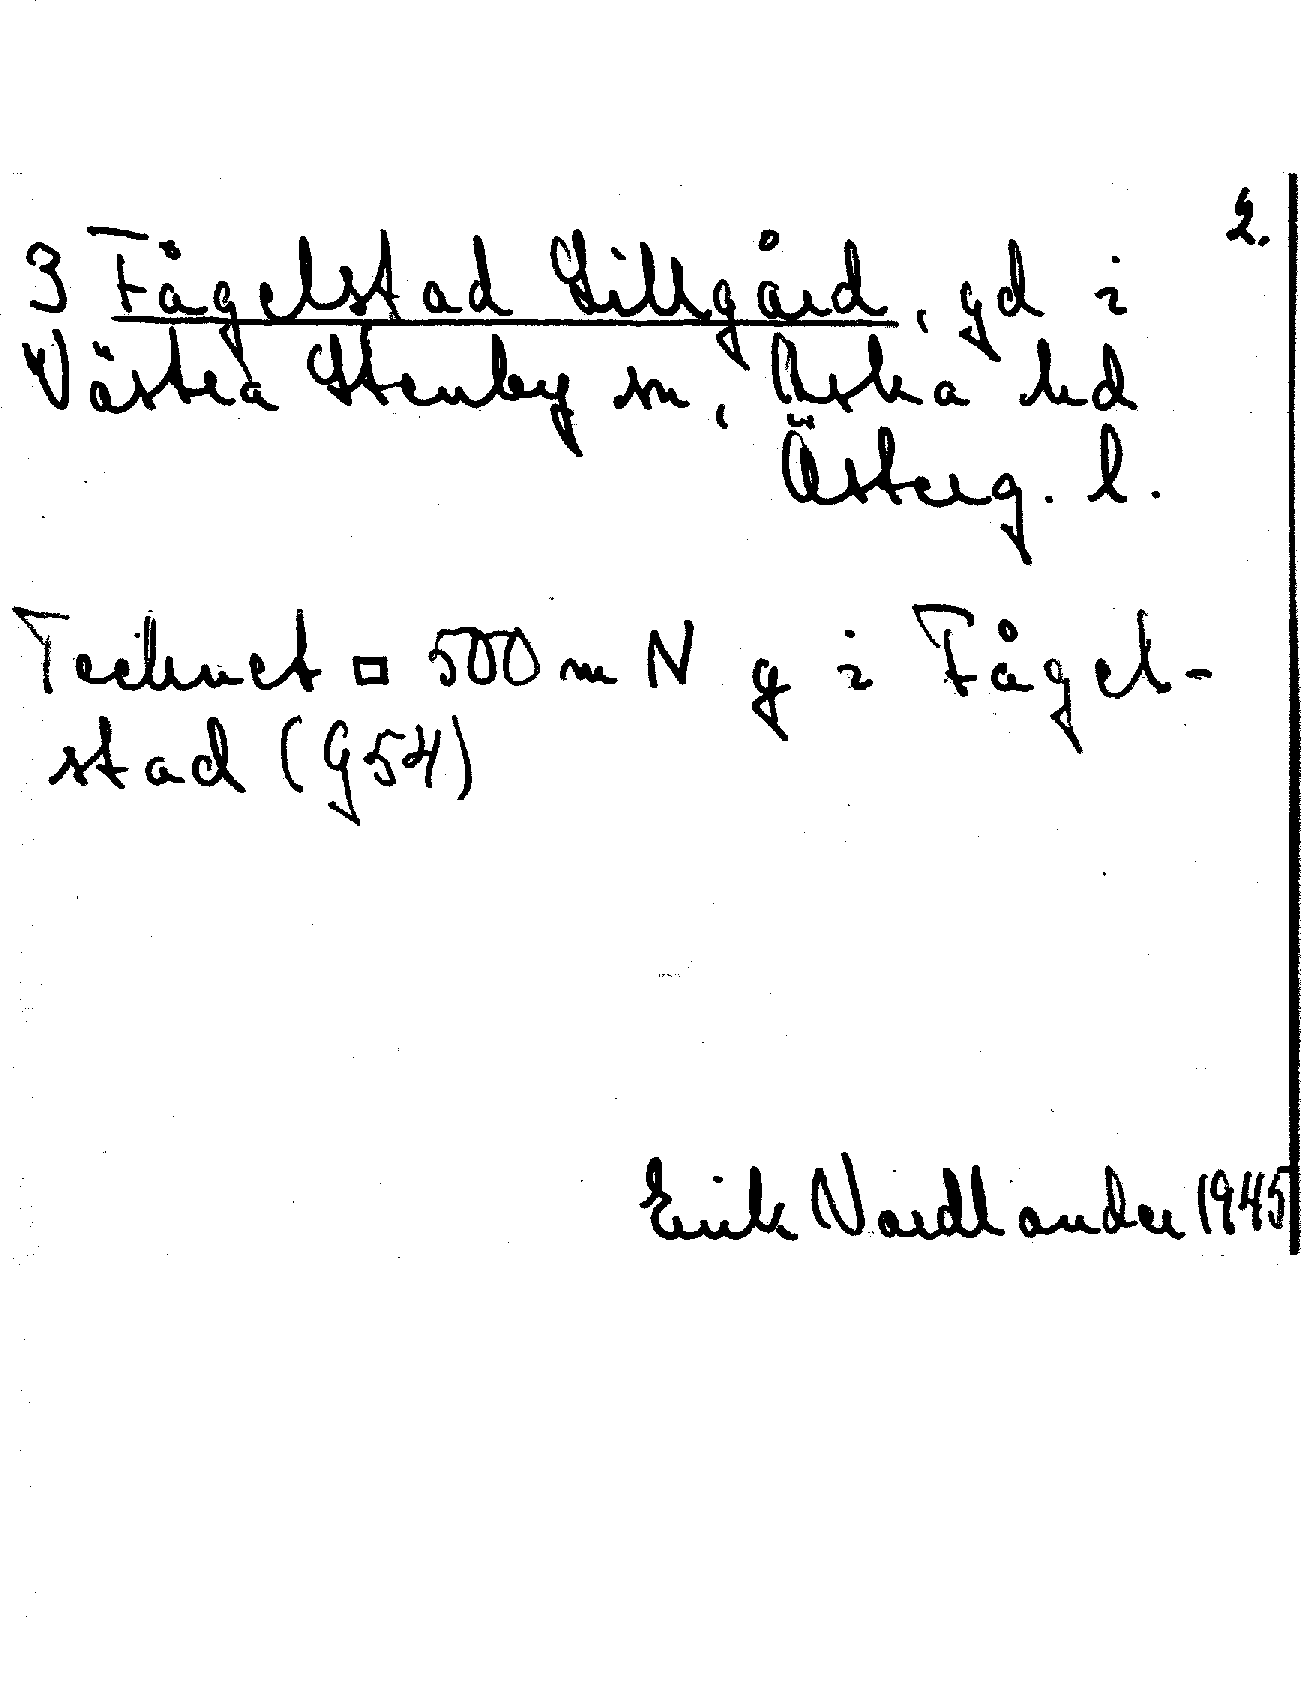 2.
3 Fågelstad Lillgård, gd i
Västra Stenby sn, Aska hd
Österg. l.
Tecknet □ 500 m N g i Fågel-
stad (954)
Erik Nordlander 1945